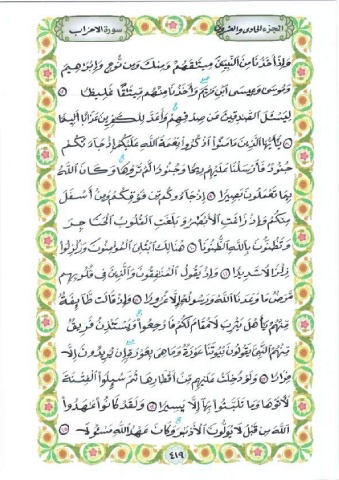 الجزء الحادى والعشرون
سورة الاحزاب
وَإِذْ أَخَذْنَا مِنَ النَّبِيِّينَ مِيثَاقَهُمْ وَمِنكَ وَمِن نُّوحٍ وَإِبْرَاهِيمَ
وَمُوسَى وَعِيسَى ابْنِ مَرْيَمَ وَأَخَذْنَا مِنْهُم مِّيثَاقًا غَلِيظًا ۝
لِيَسْئَلَ الصَّادِقِينَ عَن صِدْقِهِمْ وَأَعَدَّ لِلْكَافِرِينَ عَذَابًا أَلِيمًا
۝ يَا أَيُّهَا الَّذِينَ ءَامَنُوا اذْكُرُوا نِعْمَةَ اللَّهِ عَلَيْكُمْ إِذْ جَاءَتْكُمْ
جُنُودٌ فَأَرْسَلْنَا عَلَيْهِمْ رِيحًا وَجُنُودًا لَّمْ تَرَوْهَا وَكَانَ اللَّهُ
بِمَا تَعْمَلُونَ بَصِيرًا ۝ إِذْ جَاءُوكُم مِّن فَوْقِكُمْ وَمِنْ أَسْفَلَ
مِنكُمْ وَإِذْ زَاغَتِ الْأَبْصَارُ وَبَلَغَتِ الْقُلُوبُ الْحَنَاجِرَ
وَتَظُنُّونَ بِاللَّهِ الظُّنُونَا ۝ هُنَالِكَ ابْتُلِيَ الْمُؤْمِنُونَ وَزُلْزِلُوا
زِلْزَالًا شَدِيدًا ۝ وَإِذْ يَقُولُ الْمُنَافِقُونَ وَالَّذِينَ فِي قُلُوبِهِم
مَّرَضٌ مَّا وَعَدَنَا اللَّهُ وَرَسُولُهُ إِلَّا غُرُورًا ۝ وَإِذْ قَالَت طَّائِفَةٌ
مِّنْهُمْ يَا أَهْلَ يَثْرِبَ لَا مُقَامَ لَكُمْ فَارْجِعُوا وَيَسْتَأْذِنُ فَرِيقٌ
مِّنْهُمُ النَّبِيَّ يَقُولُونَ إِنَّ بُيُوتَنَا عَوْرَةٌ وَمَا هِيَ بِعَوْرَةٍ إِن يُرِيدُونَ إِلَّا
فِرَارًا ۝ وَلَوْ دُخِلَتْ عَلَيْهِم مِّنْ أَقْطَارِهَا ثُمَّ سُئِلُوا الْفِتْنَةَ
لَآتَوْهَا وَمَا تَلَبَّثُوا بِهَا إِلَّا يَسِيرًا ۝ وَلَقَدْ كَانُوا عَاهَدُوا
اللَّهَ مِن قَبْلُ لَا يُوَلُّونَ الْأَدْبَارَ وَكَانَ عَهْدُ اللَّهِ مَسْئُولًا ۝
٤١٩